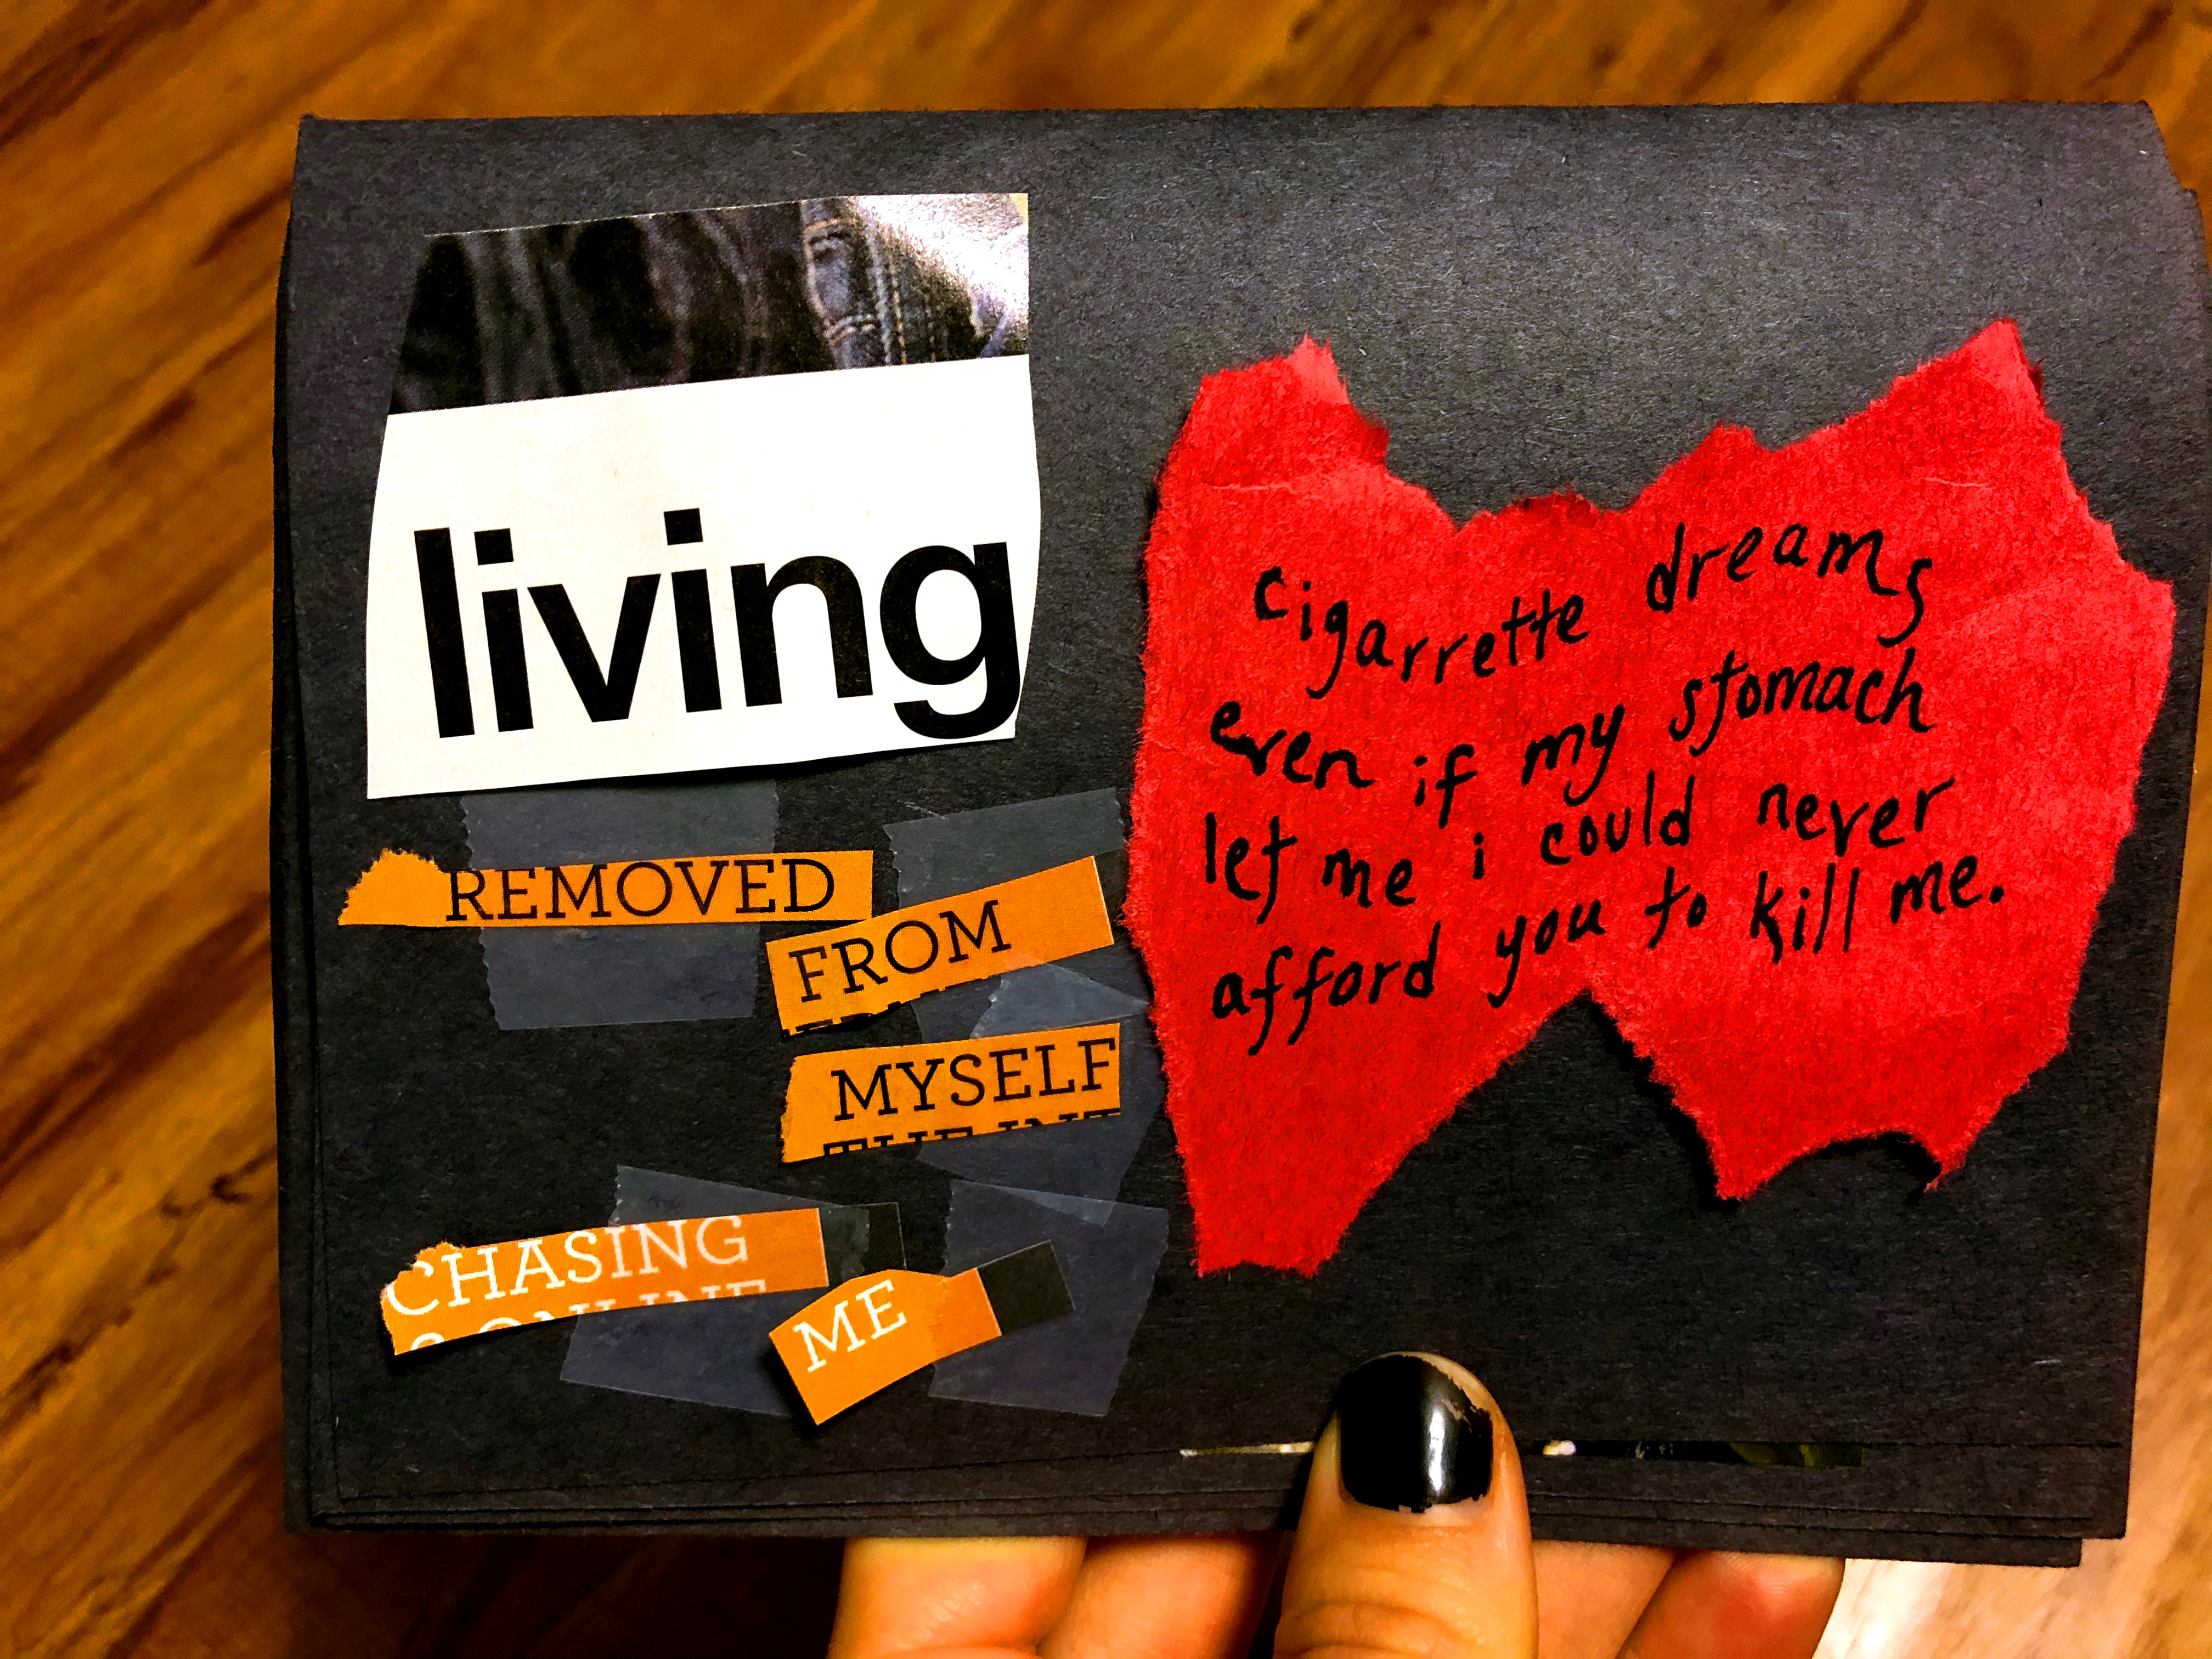 living
REMOVED
FROM
MYSELF
CHASING
ME
cigarrette dreams
even if my stomach
let me i could never
afford you to kill me.